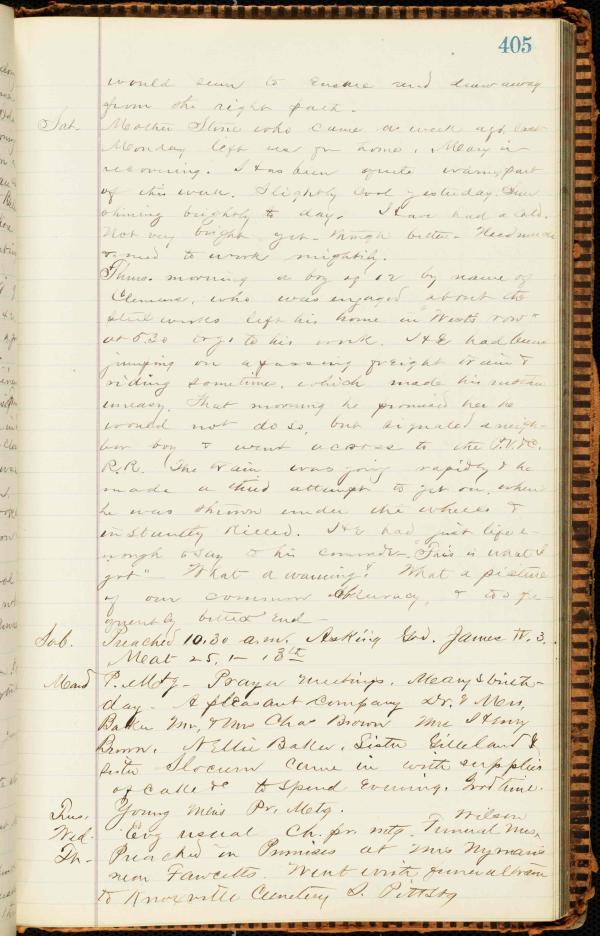 405
would seem to ensnare and draw away
from the right path.
Sat. Mother Stone who came a week ago last
Monday left us for home. Mary is
recovering. It has been quite warm part
of this week. Slightly cool yesterday. Sun
shining brightly to day. I have had a cold.
Not very bright yet - though better - Need much
& need to work mightily.
Thurs. morning a boy of 12 by name of
Clemens, who was engaged about the
steel works left his home in "West's row"
at 5.30 to go to his work. He had been
jumping on a passing freight train &
riding sometimes, which made his mother
uneasy. That morning he promised her he
would not do so, but signaled a neigh-
bor boy & went across to the P.V. & C.
R.R. The train was going rapidly & he
made a third attempt to get on, when
he was thrown under the wheels &
instantly killed. He had just life e-
nough to say to his comrade "This is what I
got" - What a warning! What a picture
of our common & too fre-
quently bitter end -
Sab. Preached 10.30 a.m. Asking God. James IV. 3.
Matt 25. 1 - 13th
Mond P. Mtg - Prayer meetings. Mary's birth-
day - A pleasant company Dr. & Mrs.
Baker Mr. & Mrs Chas Brown Mrs Henry
Brown. Nellie Baker. Sister Gilleland &
sister Slocum came in with supplies
of cake &c to spend evening. Good time.
Tues. Young Men's Pr. Metg.
Wed. Evg usual Ch. pr. mtg. Funeral Mrs. Wilson
Th - Preached in Promises at Mrs Nyman's
near Fawcetts. Went with funeral train
to Knoxville Cemetery S. Pittsbg